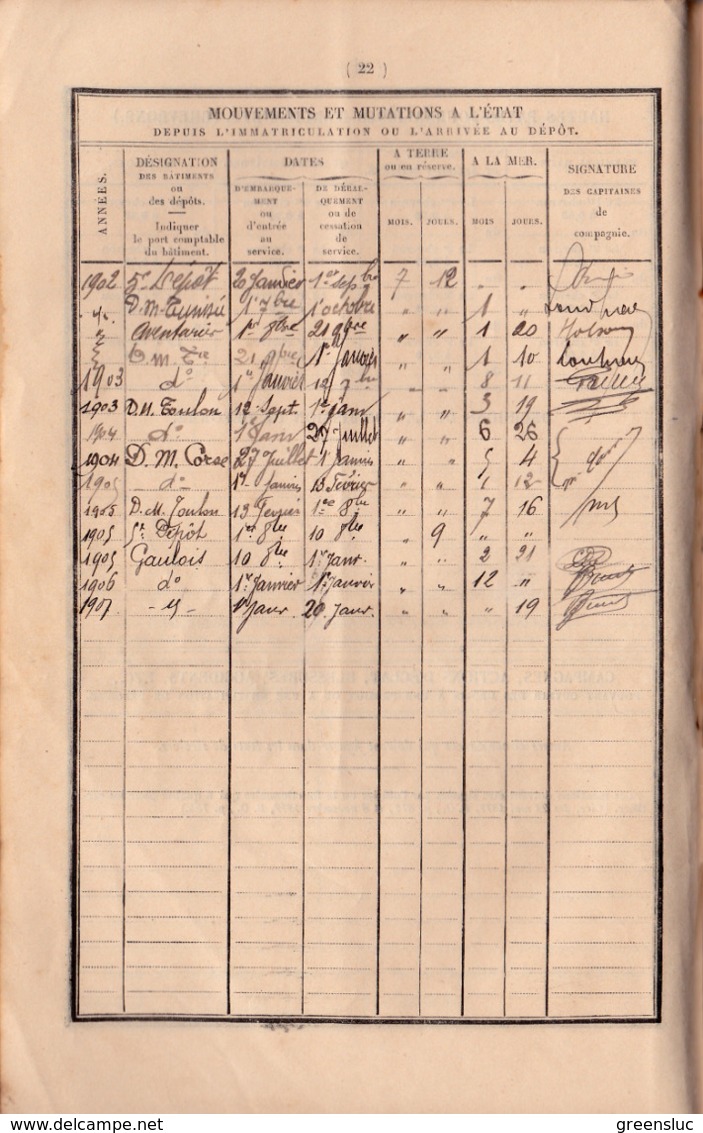 ( 22 )
MOUVEMENTS ET MUTATIONS A L'ÉTAT
DEPUIS L'IMMATRICULATION OU L'ARRIVÉE AU DÉPÔT.
ANNÉES.
DÉSIGNATION
DES BÂTIMENTS
ou
des dépôts.
Indiquer
le port comptable
du bâtiment.
DATES
D'EMBARQUE-
MENT
ou
d'entrée
au
service.
DE DÉBAR-
QUEMENT
ou de
cessation
de
service.
A TERRE
ou en réserve.
MOIS. JOURS.
A LA MER.
MOIS JOURS.
SIGNATURE
DES CAPITAINES
de
compagnie.
1902 5e Dépôt 20 Janvier 1er sepbre 7 12 " "
D. M. Tunisie 1r 7bre 1r octobre " " 1 "
" 1er 8bre 21 9bre " " 1 20
D. M. 21 9bre 1r Janvier " " 1 10
1903 do 1er Janvier 12 7bre " " 8 11
1903 D. M. Toulon 12 Sept. 1er Janv " " 3 19
1904 do 1er Janv 27 Juillet " " 6 26
1904 D. M. Corse 27 Juillet 1 Janvier " " 5 4
1905 do 1er Janvier 13 Février " " 1 12
1905 D. M. Toulon 13 Février 1er 8bre " " 7 16
1905 5e Dépôt 1er 8bre 10 8bre 9 " "
1905 Gaulois 10 8bre 1er Janr. " " 2 21
1906 do 1er Janvier 1er Janvier " " 12 "
1907 1er Janr 20 Janr. " " " 19
greensluc